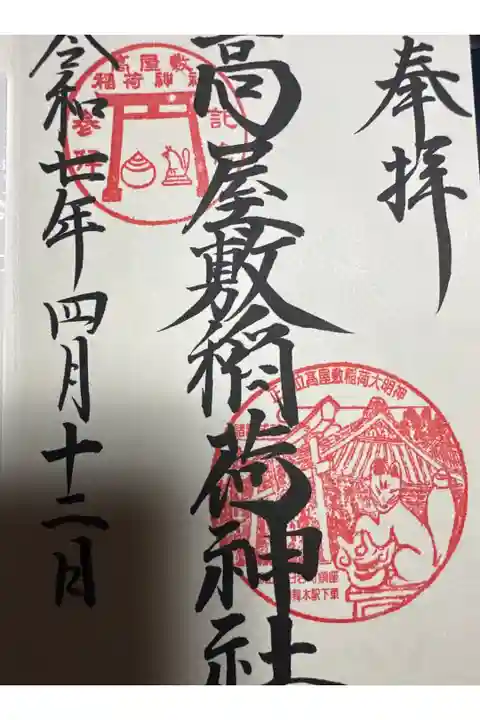 奉拝
高屋敷稲荷神社
令和七年四月十二日
高屋敷
稲荷神社
参拝
記
位高屋敷稲荷大明神
鎮座
木駅下車